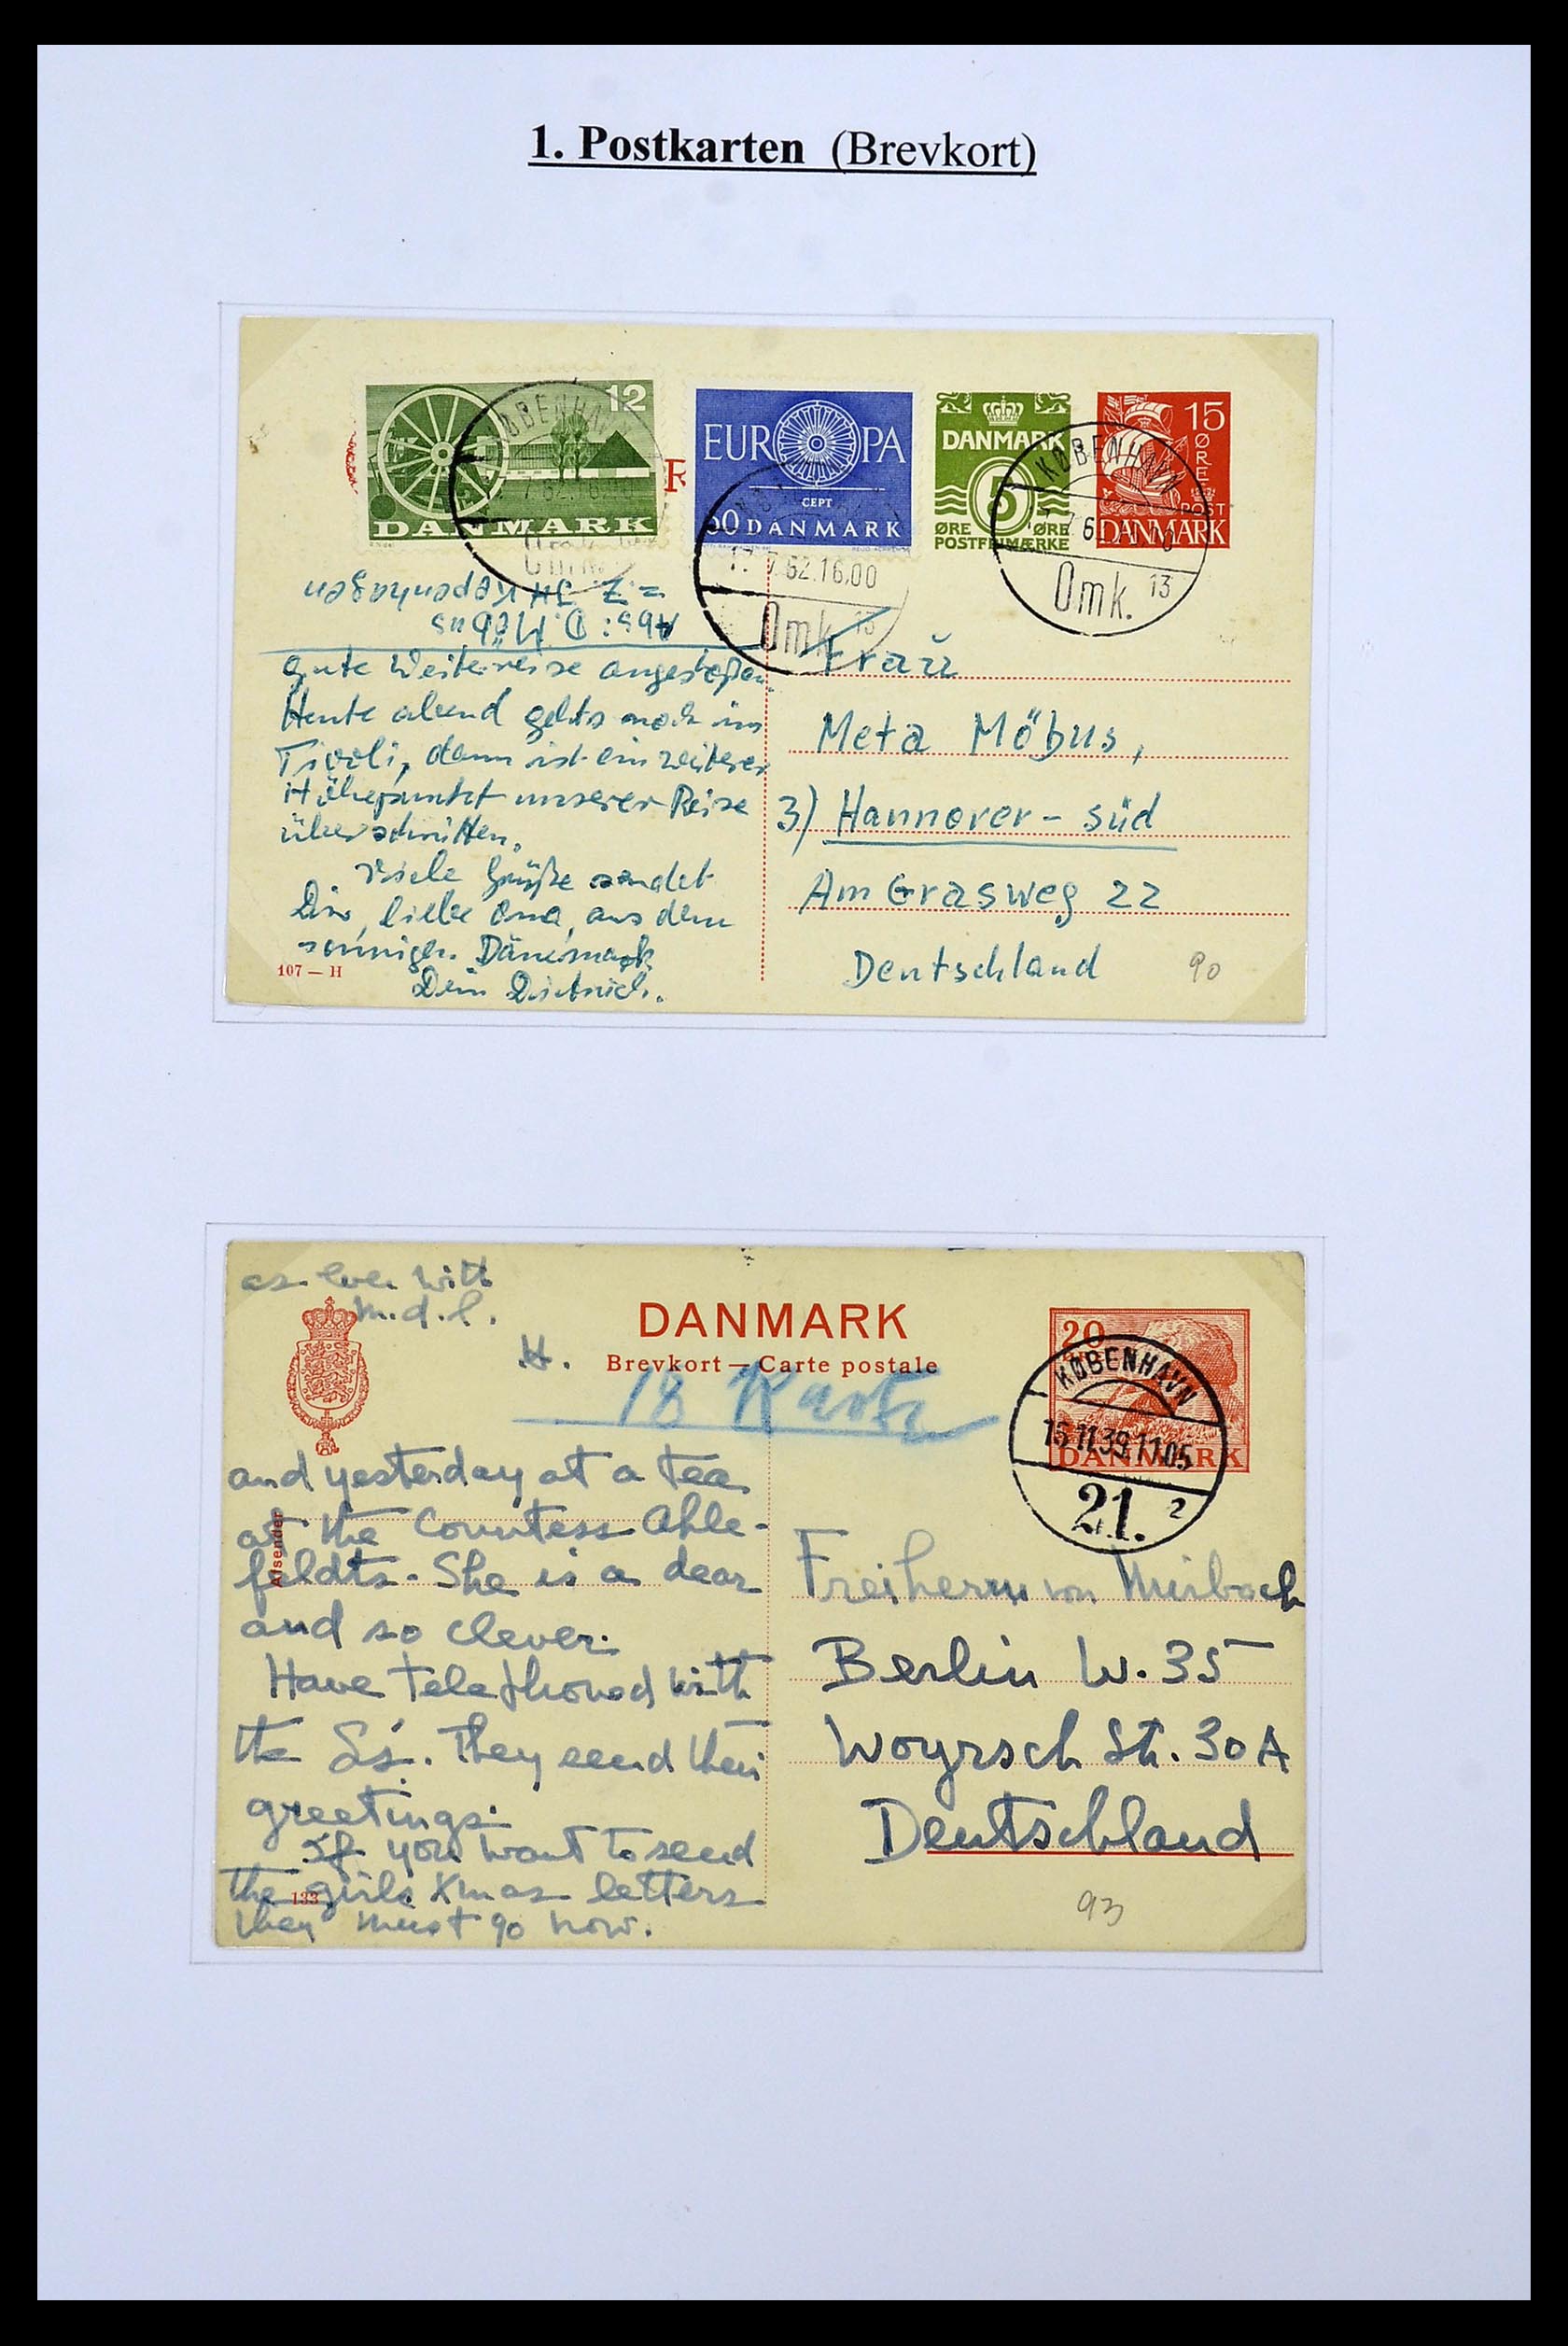 1. Postkarten (Brevkort)
12
DANMARK
EUROPA
CEPT
60 DANMARK
DANMARK
5
ØRE ØRE
POSTFRIMÆRKE
15
ØRE
POST
DANMARK
KØBENHAVN
Omk.
17.7.62.16.00
Omk. 13
KØBENHAVN
Omk. 13
Abs: D. Möbus
z. Z. Kopenhagen
gute Weiterreise angestoßen.
Heute abend gehts noch ins
Tivoli, dann ist ein weiterer
Höhepunkt unserer Reise
überschritten.
Viele Grüße sendet
Dir, liebe Oma, aus dem
sonnigen Dänemark
Dein Dietrich.
107 — H
Frau
Meta Möbus,
3) Hannover - Süd
Am Grasweg 22
Deutschland
90
as ever with
m.d.l.
H.
DANMARK
Brevkort — Carte postale
18 Karte
20
DANMARK
KØBENHAVN
15.11.39.11.05
21. 2
and yesterday at a tea
at the Countess Ahle-
feldts. She is a dear
and so clever.
Have telephoned with
the S's. They send their
greetings.
If you want to send
the girls Xmas letters
they must go now.
Afsender
133
Freiherrn von Mirbach
Berlin W. 35
Woyrsch Str. 30A
Deutschland
93